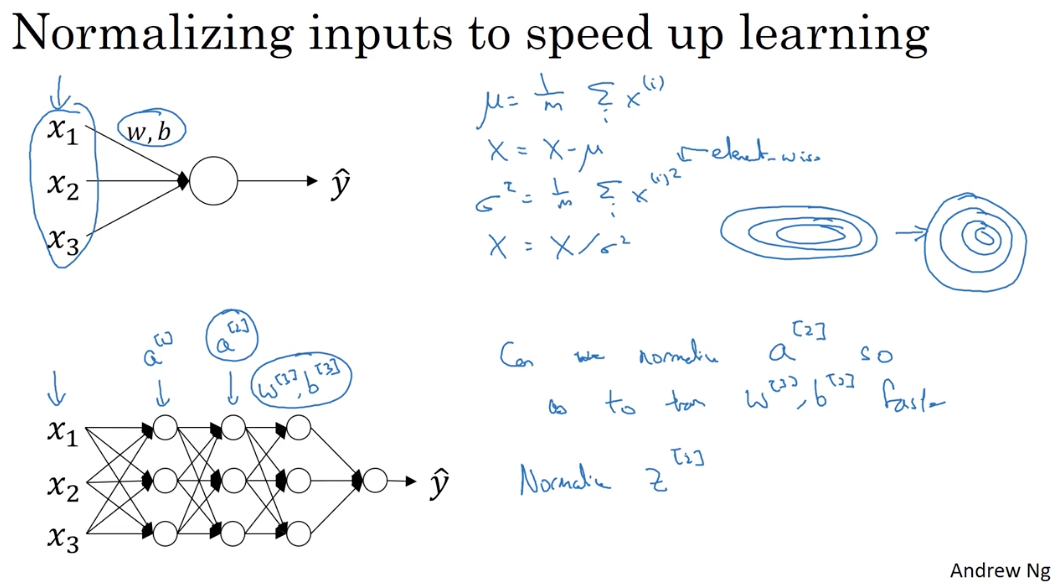 Normalizing inputs to speed up learning
x₁
x₂
x₃
w, b
ŷ
μ = 1/m Σᵢ x⁽ⁱ⁾
X = X - μ
σ² = 1/m Σᵢ x⁽ⁱ⁾² ← element-wise
X = X / σ²
a^[1] a^[2] w^[3], b^[3]
x₁
x₂
x₃
ŷ
Can we normalize a^[2] so
as to train w^[3], b^[3] faster
Normalize z^[2]
Andrew Ng